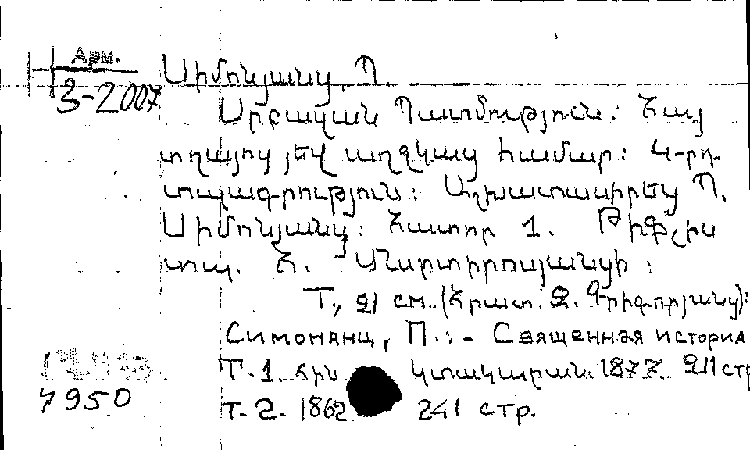 Арм.
3-2007
Սիմոնյանց, Պ.
Սրբական Պատմություն: Հայ
տղայոց յեվ աղջկաց համար: 4-րդ
տպագրություն: Աշխատասիրեց Պ.
Սիմոնյանց: Հատոր 1. Թիֆլիս
տպ. Հ. Մարտիրոսյանցի:
Т, 21 см. (Հրատ. Զ. Գրիգորյանց):
Симонянц, П.: - Священная история
Т. 1. Հին կտակարան. 1877. 211 стр
7950
т. 2. 1862 241 стр.